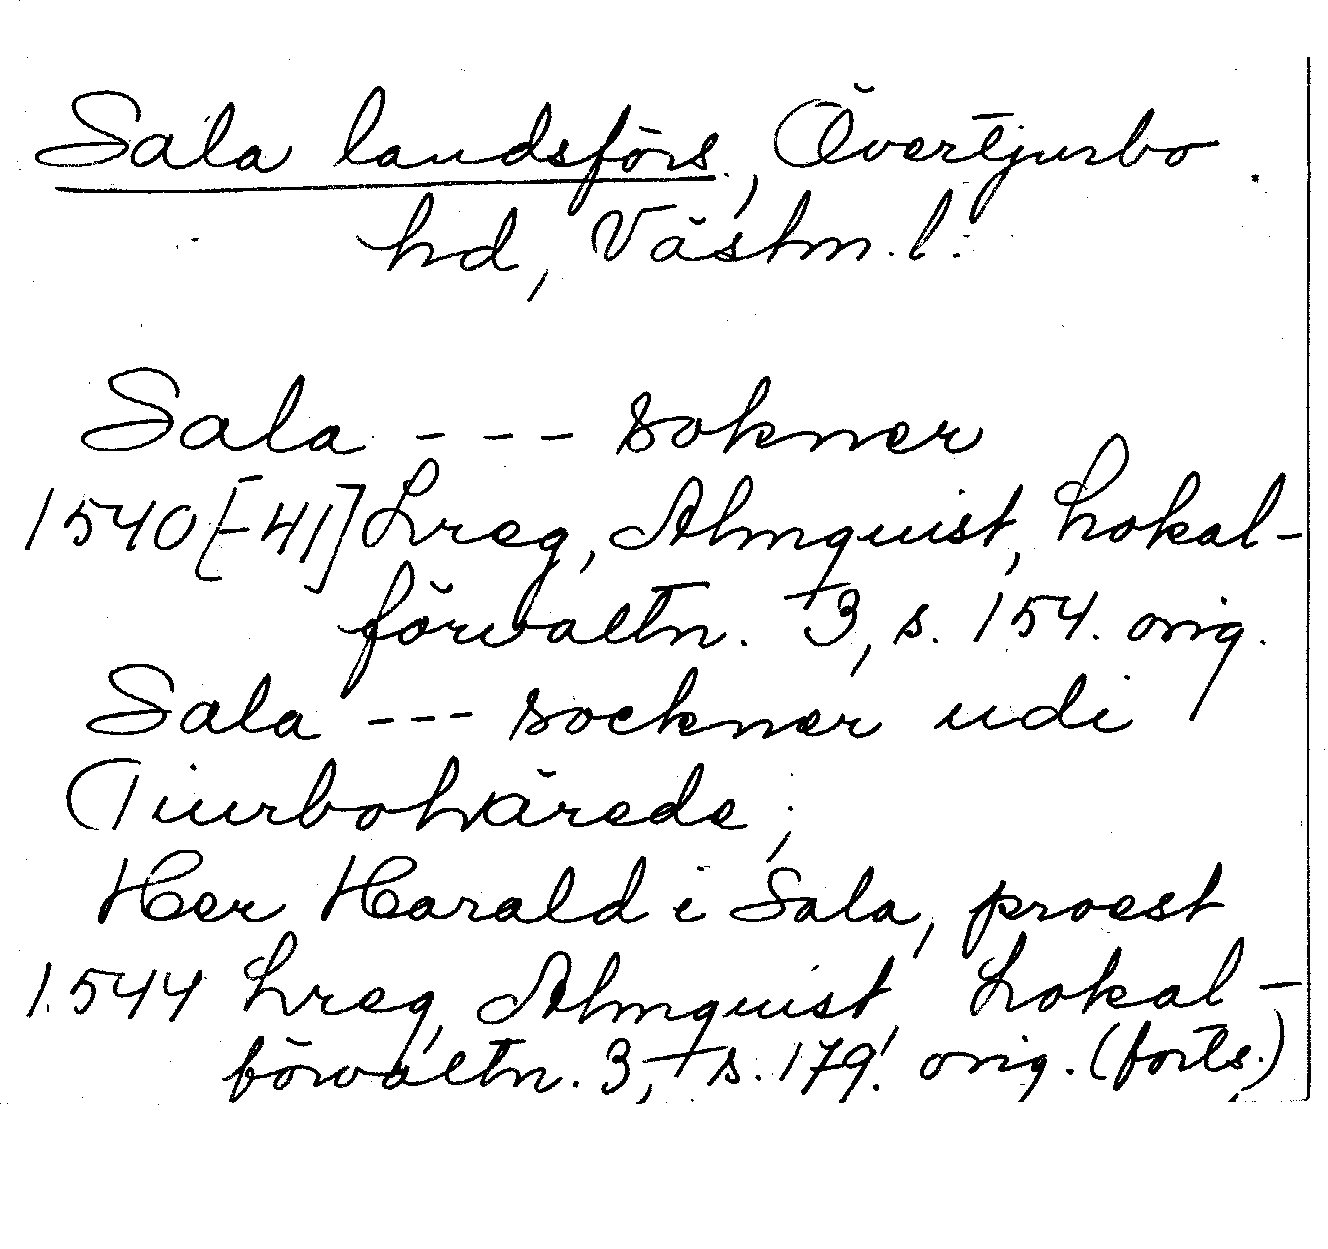 Sala landsförs., Övertjurbo
hd, Västm. l.
Sala --- sokner
1540[-41] Lreg, Almquist, Lokal-
förvaltn. 3, s. 154. orig.
Sala --- sockner udi
Tiurbohärede,
Her Harald i Sala, proest
1544 Lreg, Almquist, Lokal-
förvaltn. 3, s. 179. orig. (forts.)